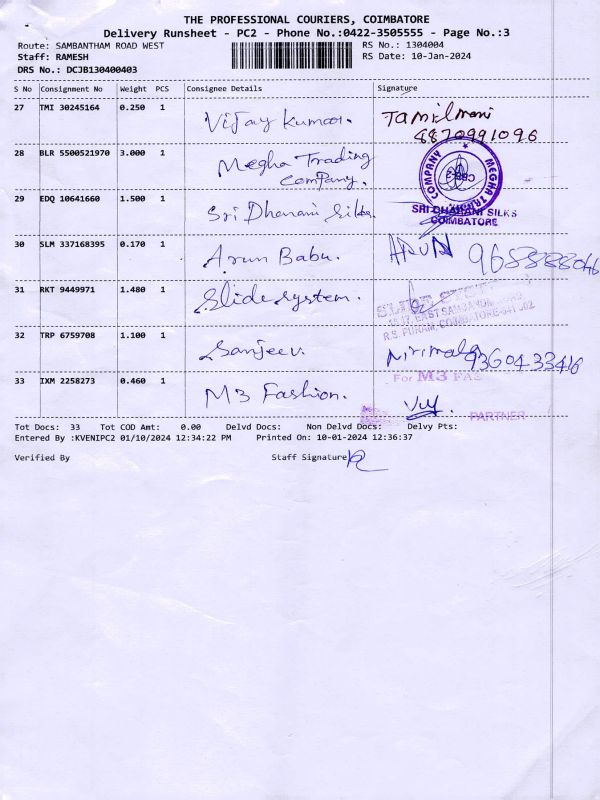 THE PROFESSIONAL COURIERS, COIMBATORE
Delivery Runsheet - PC2 - Phone No.:0422-3505555 - Page No.:3
Route: SAMBANTHAM ROAD WEST RS No.: 1304004
Staff: RAMESH RS Date: 10-Jan-2024
DRS No.: DCJB130400403
S No Consignment No Weight PCS Consignee Details Signature
27 TMI 30245164 0.250 1 Vijay Kumar. Tamilmani
8870991096
28 BLR 5500521970 3.000 1 Megha Trading
Company.
COMPANY MEGHA
29 EDQ 10641660 1.500 1 Sri Dharani Silks. SRI DHARANI SILKS
COIMBATORE
30 SLM 337168395 0.170 1 Arun Babu. ARUN
31 RKT 9449971 1.480 1 Slide system.
EAST SAMBANDAM
R.S. PURAM, COIMBATORE-641 002
32 TRP 6759708 1.100 1 Sanjeev. Nirmala 9360433416
33 IXM 2258273 0.460 1 M3 Fashion. For M3 FAS
PARTNER
Tot Docs: 33 Tot COD Amt: 0.00 Delvd Docs: Non Delvd Docs: Delvy Pts:
Entered By :KVENIPC2 01/10/2024 12:34:22 PM Printed On: 10-01-2024 12:36:37
Verified By Staff Signature